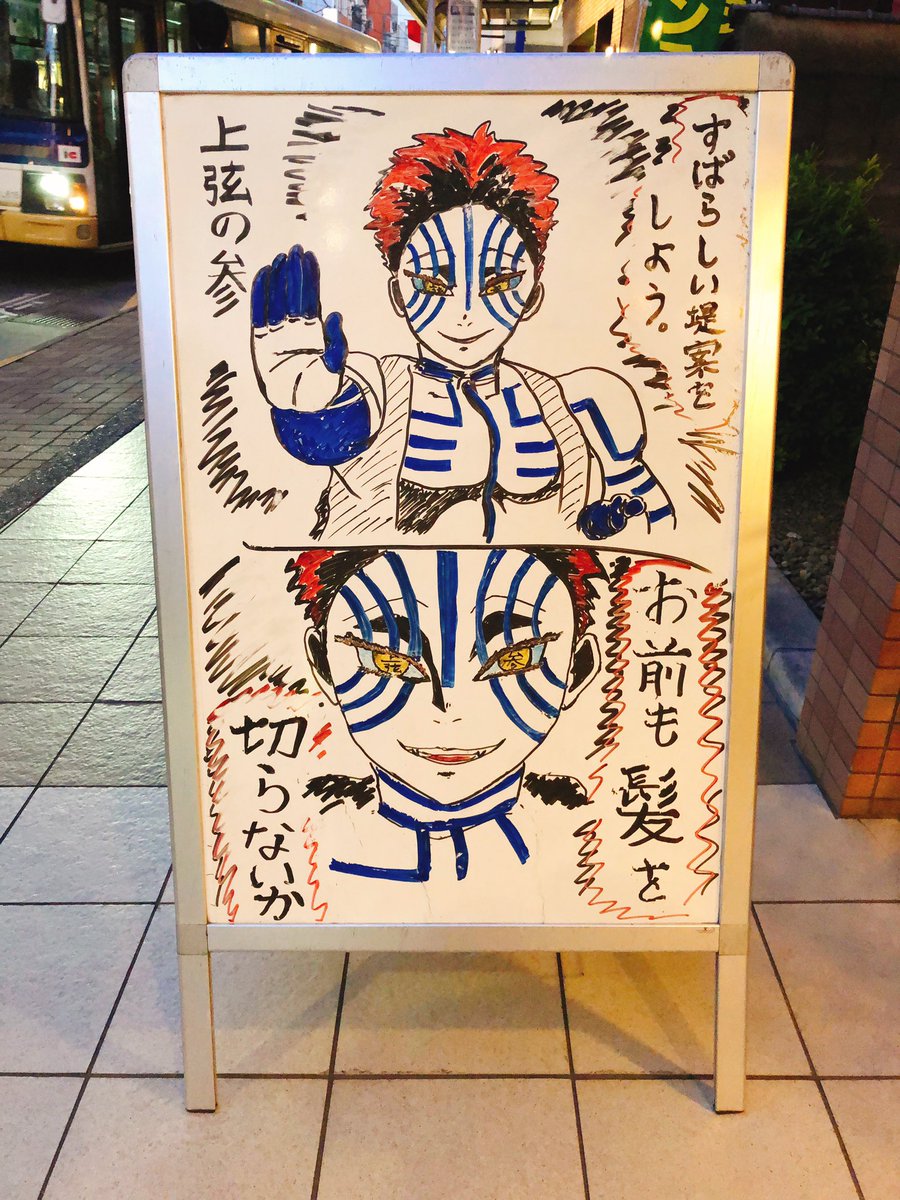 すばらしい堤案を
しよう。
上弦の参
お前も髪を
切らないか
弦
参